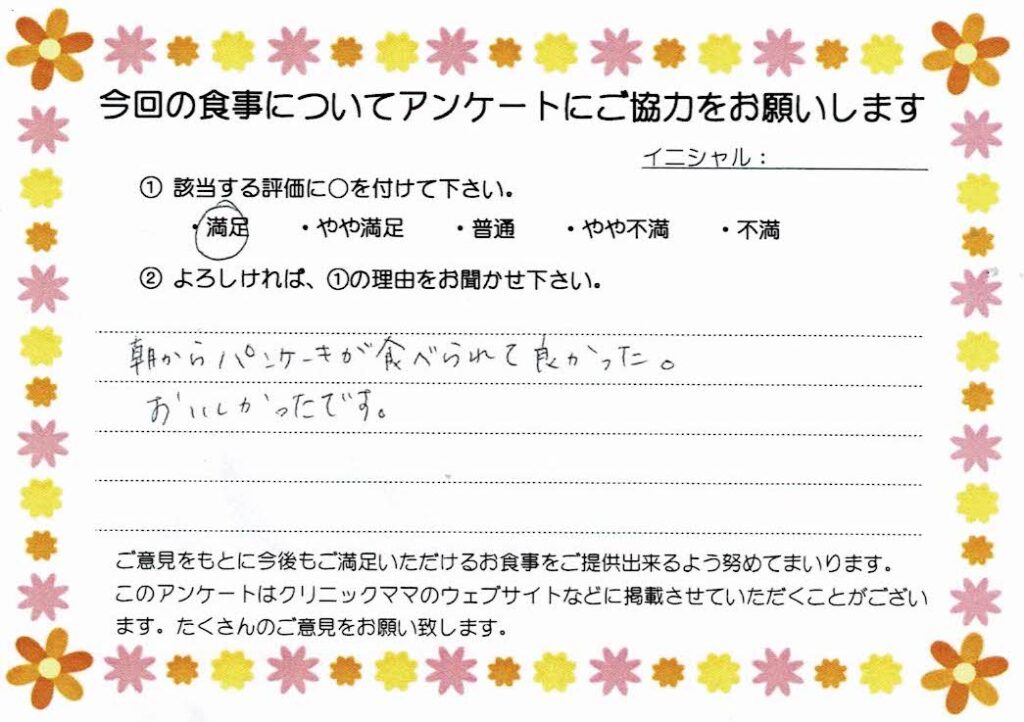 今回の食事についてアンケートにご協力をお願いします
イニシャル：
① 該当する評価に○を付けて下さい。
・満足 ・やや満足 ・普通 ・やや不満 ・不満
② よろしければ、①の理由をお聞かせ下さい。
朝からパンケーキが食べられて良かった。
おいしかったです。
ご意見をもとに今後もご満足いただけるお食事をご提供出来るよう努めてまいります。
このアンケートはクリニックママのウェブサイトなどに掲載させていただくことがござい
ます。たくさんのご意見をお願い致します。